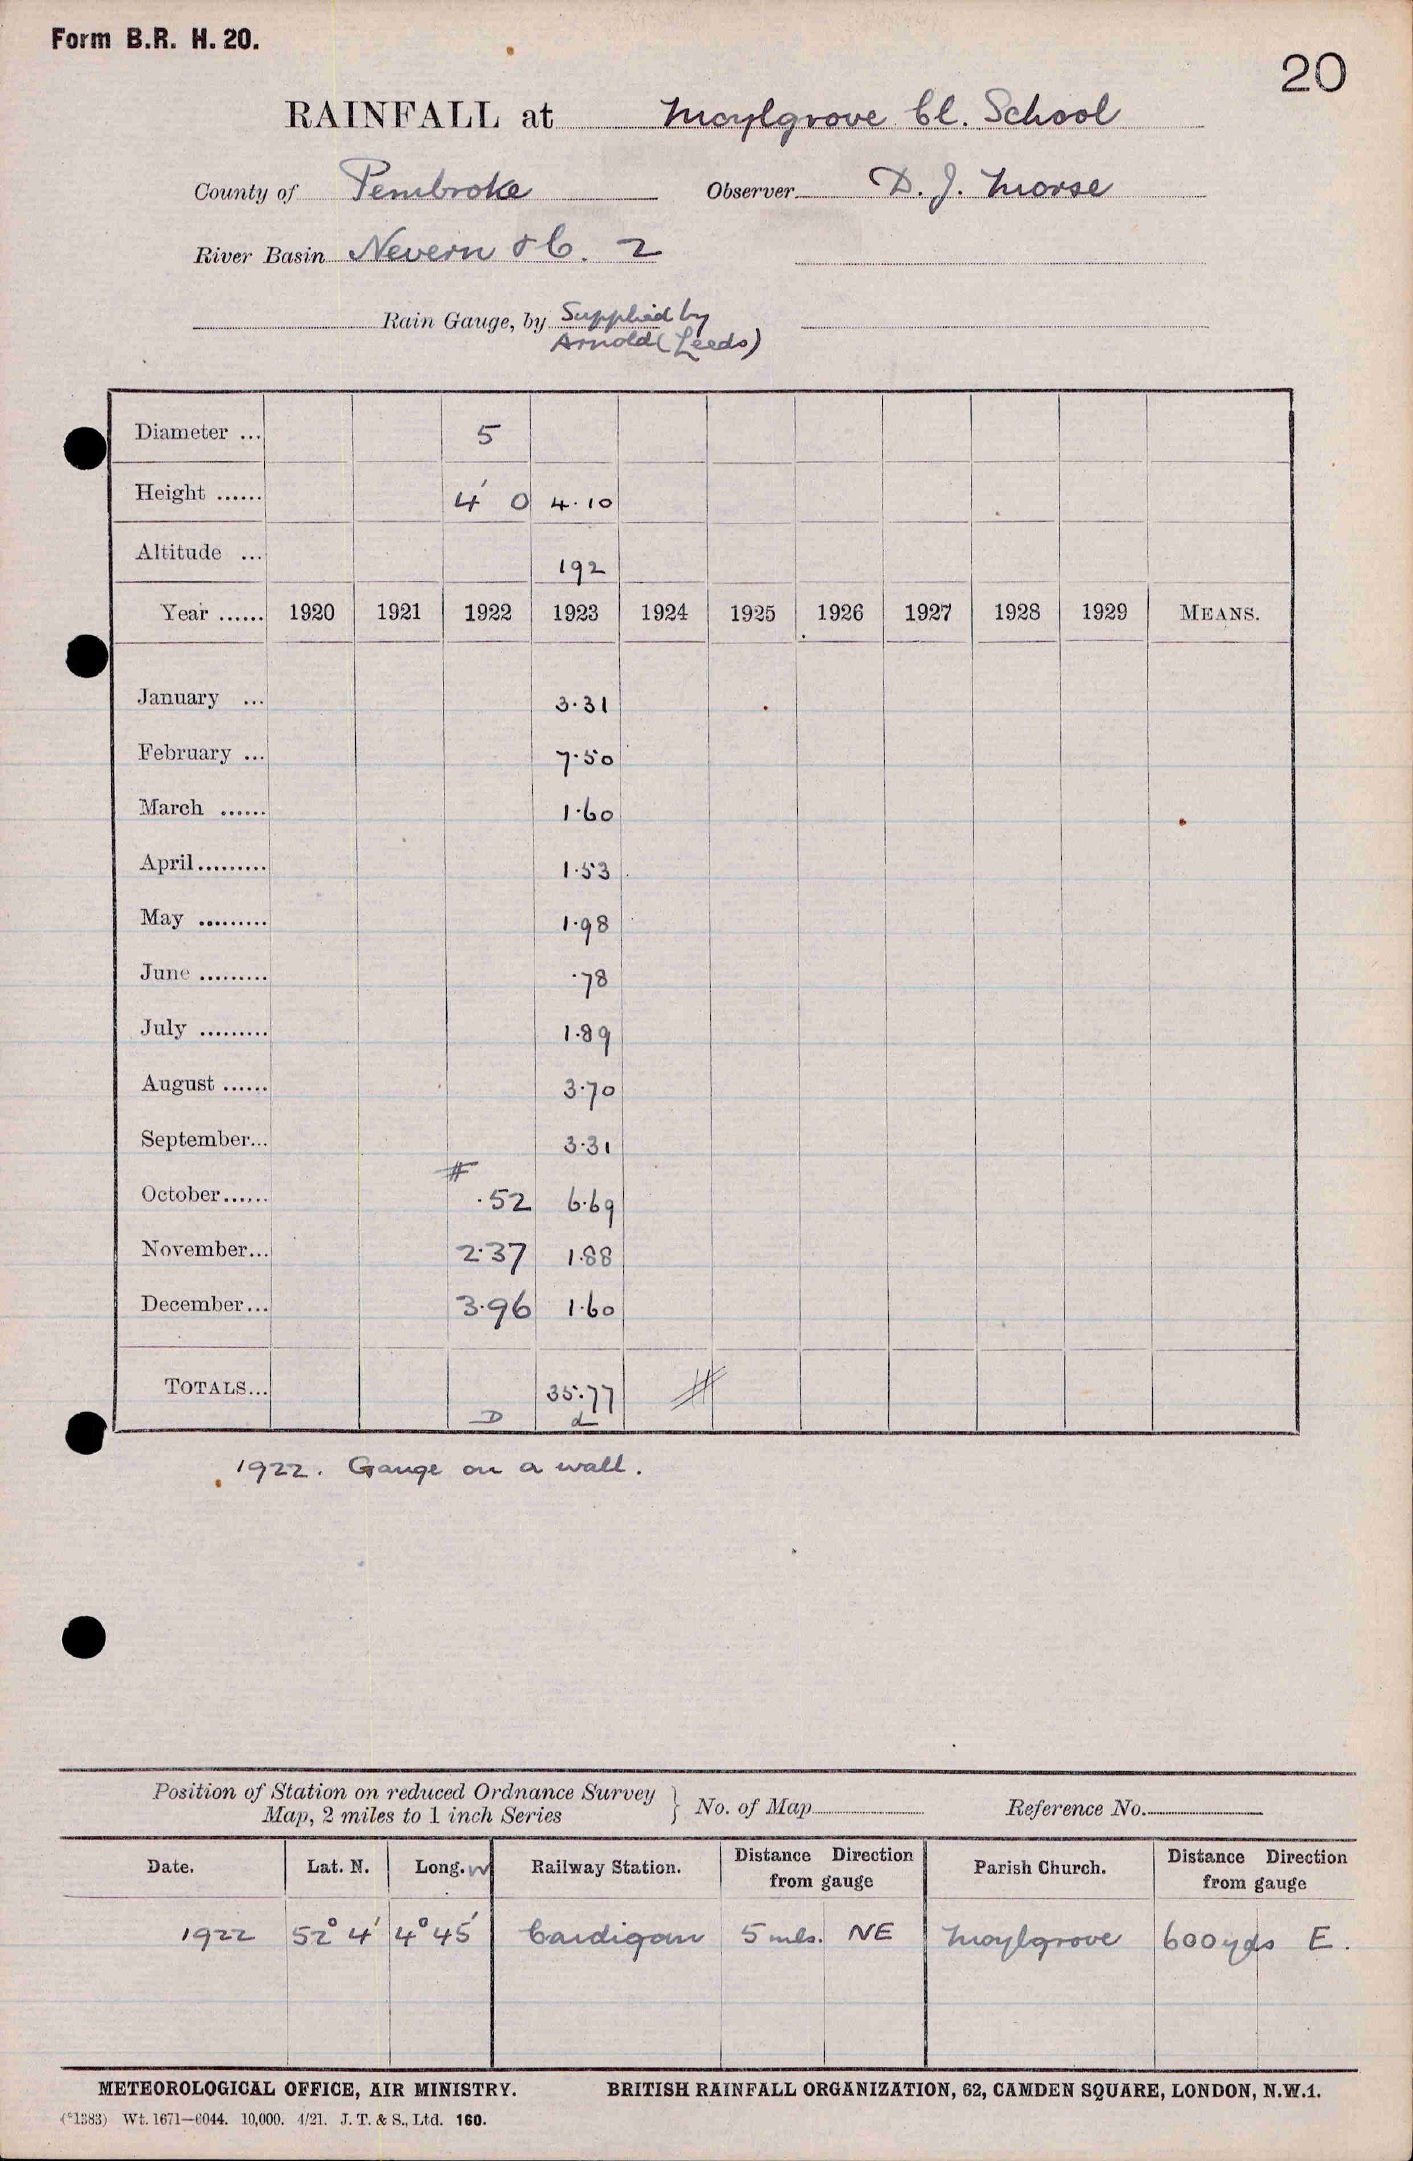 Form B.R. H. 20.
20
RAINFALL at Moylgrove Cl. School
County of Pembroke Observer D. J. Morse
River Basin Nevern &c. 2
Rain Gauge, by Supplied by
Arnold (Leeds)
Diameter ... 5
Height ...... 4' 0 4.10
Altitude ... 192
Year ...... 1920 1921 1922 1923 1924 1925 1926 1927 1928 1929 MEANS.
January ... 3.31
February ... 7.50
March ...... 1.60
April......... 1.53
May ......... 1.98
June ......... .78
July ......... 1.89
August ...... 3.70
September... 3.31
#
October...... .52 6.69
November... 2.37 1.88
December... 3.96 1.60
TOTALS... 35.77 #
D d
1922. Gauge on a wall.
Position of Station on reduced Ordnance Survey
Map, 2 miles to 1 inch Series } No. of Map Reference No.
Date. Lat. N. Long. W Railway Station. Distance Direction from gauge Parish Church. Distance Direction from gauge
1922 52° 4' 4° 45' Cardigan 5 mls. NE Moylgrove 600 yds E.
METEOROLOGICAL OFFICE, AIR MINISTRY. BRITISH RAINFALL ORGANIZATION, 62, CAMDEN SQUARE, LONDON, N.W.1.
(*1383) Wt. 1671—6044. 10,000. 4/21. J. T. & S., Ltd. 160.